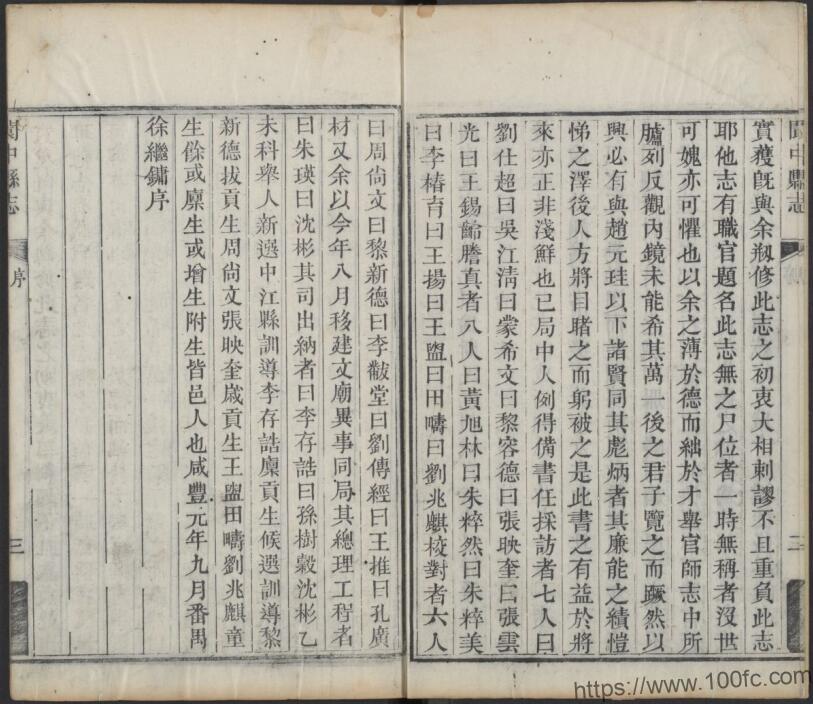 閬中縣志
實獲旣與余剏修此志之初衷大相剌謬不且重負此志
耶他志有職官題名此志無之尸位者一時無稱者沒世
可媿亦可懼也以余之薄於德而絀於才舉官師志中所
臚列反觀內鏡未能希其萬一後之君子覽之而蹶然以
興必有與趙元珪以下諸賢同其彪炳者其廉能之績愷
悌之澤後人方將目睹之而躬被之是此書之有益於將
來亦正非淺鮮也已局中人例得備書任採訪者七人曰
劉仕超曰吳江淸曰蒙希文曰黎容德曰張映奎曰張雲
光曰王錫齡謄真者八人曰黃旭林曰朱粹然曰朱粹美
曰李椿育曰王揚曰王盥曰田疇曰劉兆麒校對者六人
二
曰周尙文曰黎新德曰李黻堂曰劉傳經曰王推曰孔廣
材又余以今年八月移建文廟異事同局其總理工程者
曰朱瑛曰沈彬其司出納者曰李存誥曰孫樹穀沈彬乙
未科舉人新選中江縣訓導李存誥廩貢生候選訓導黎
新德拔貢生周尙文張映奎歲貢生王盥田疇劉兆麒童
生餘或廩生或增生附生皆邑人也咸豐元年九月番禺
徐繼鏞序
閬中縣志
序
三
https://www.100fc.com